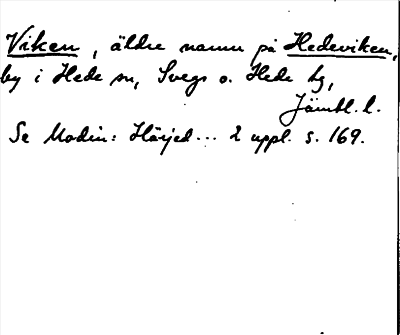 Viken, äldre namn på Hedeviken,
by i Hede sn, Svegs o. Hede tg,
Jämtl. l.
Se Modin: Härjed... 2 uppl. s. 169.